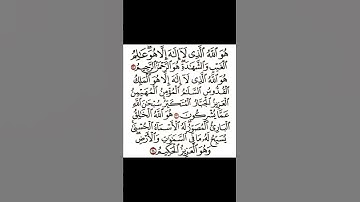 هُوَ ٱللَّهُ ٱلَّذِى لَآ إِلَٰهَ إِلَّا هُوَ ۖ عَٰلِمُ
ٱلْغَيْبِ وَٱلشَّهَٰدَةِ ۖ هُوَ ٱلرَّحْمَٰنُ ٱلرَّحِيمُ
هُوَ ٱللَّهُ ٱلَّذِى لَآ إِلَٰهَ إِلَّا هُوَ ٱلْمَلِكُ
ٱلْقُدُّوسُ ٱلسَّلَٰمُ ٱلْمُؤْمِنُ ٱلْمُهَيْمِنُ
ٱلْعَزِيزُ ٱلْجَبَّارُ ٱلْمُتَكَبِّرُ ۚ سُبْحَٰنَ ٱللَّهِ
عَمَّا يُشْرِكُونَ هُوَ ٱللَّهُ ٱلْخَٰلِقُ
ٱلْبَارِئُ ٱلْمُصَوِّرُ ۖ لَهُ ٱلْأَسْمَآءُ ٱلْحُسْنَىٰ ۚ
يُسَبِّحُ لَهُۥ مَا فِى ٱلسَّمَٰوَٰتِ وَٱلْأَرْضِ ۖ
وَهُوَ ٱلْعَزِيزُ ٱلْحَكِيمُ